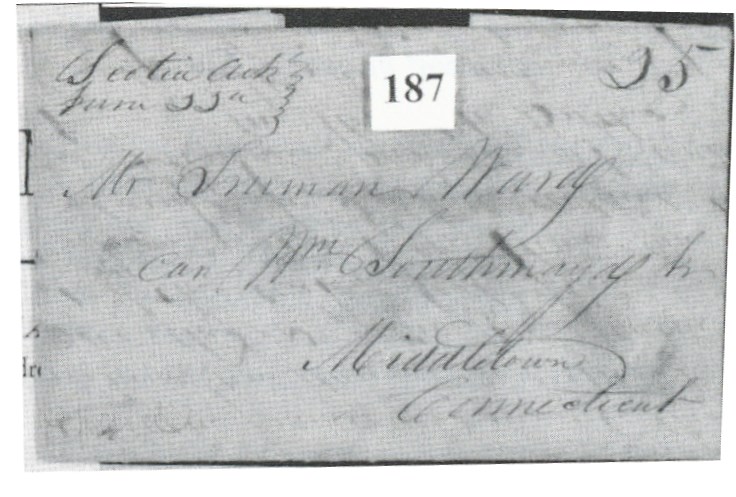 Scotia Ark
June 22d
25
187
Mr Truman Ward
Care Wm Southmayd Jr
Middletown
Connecticut